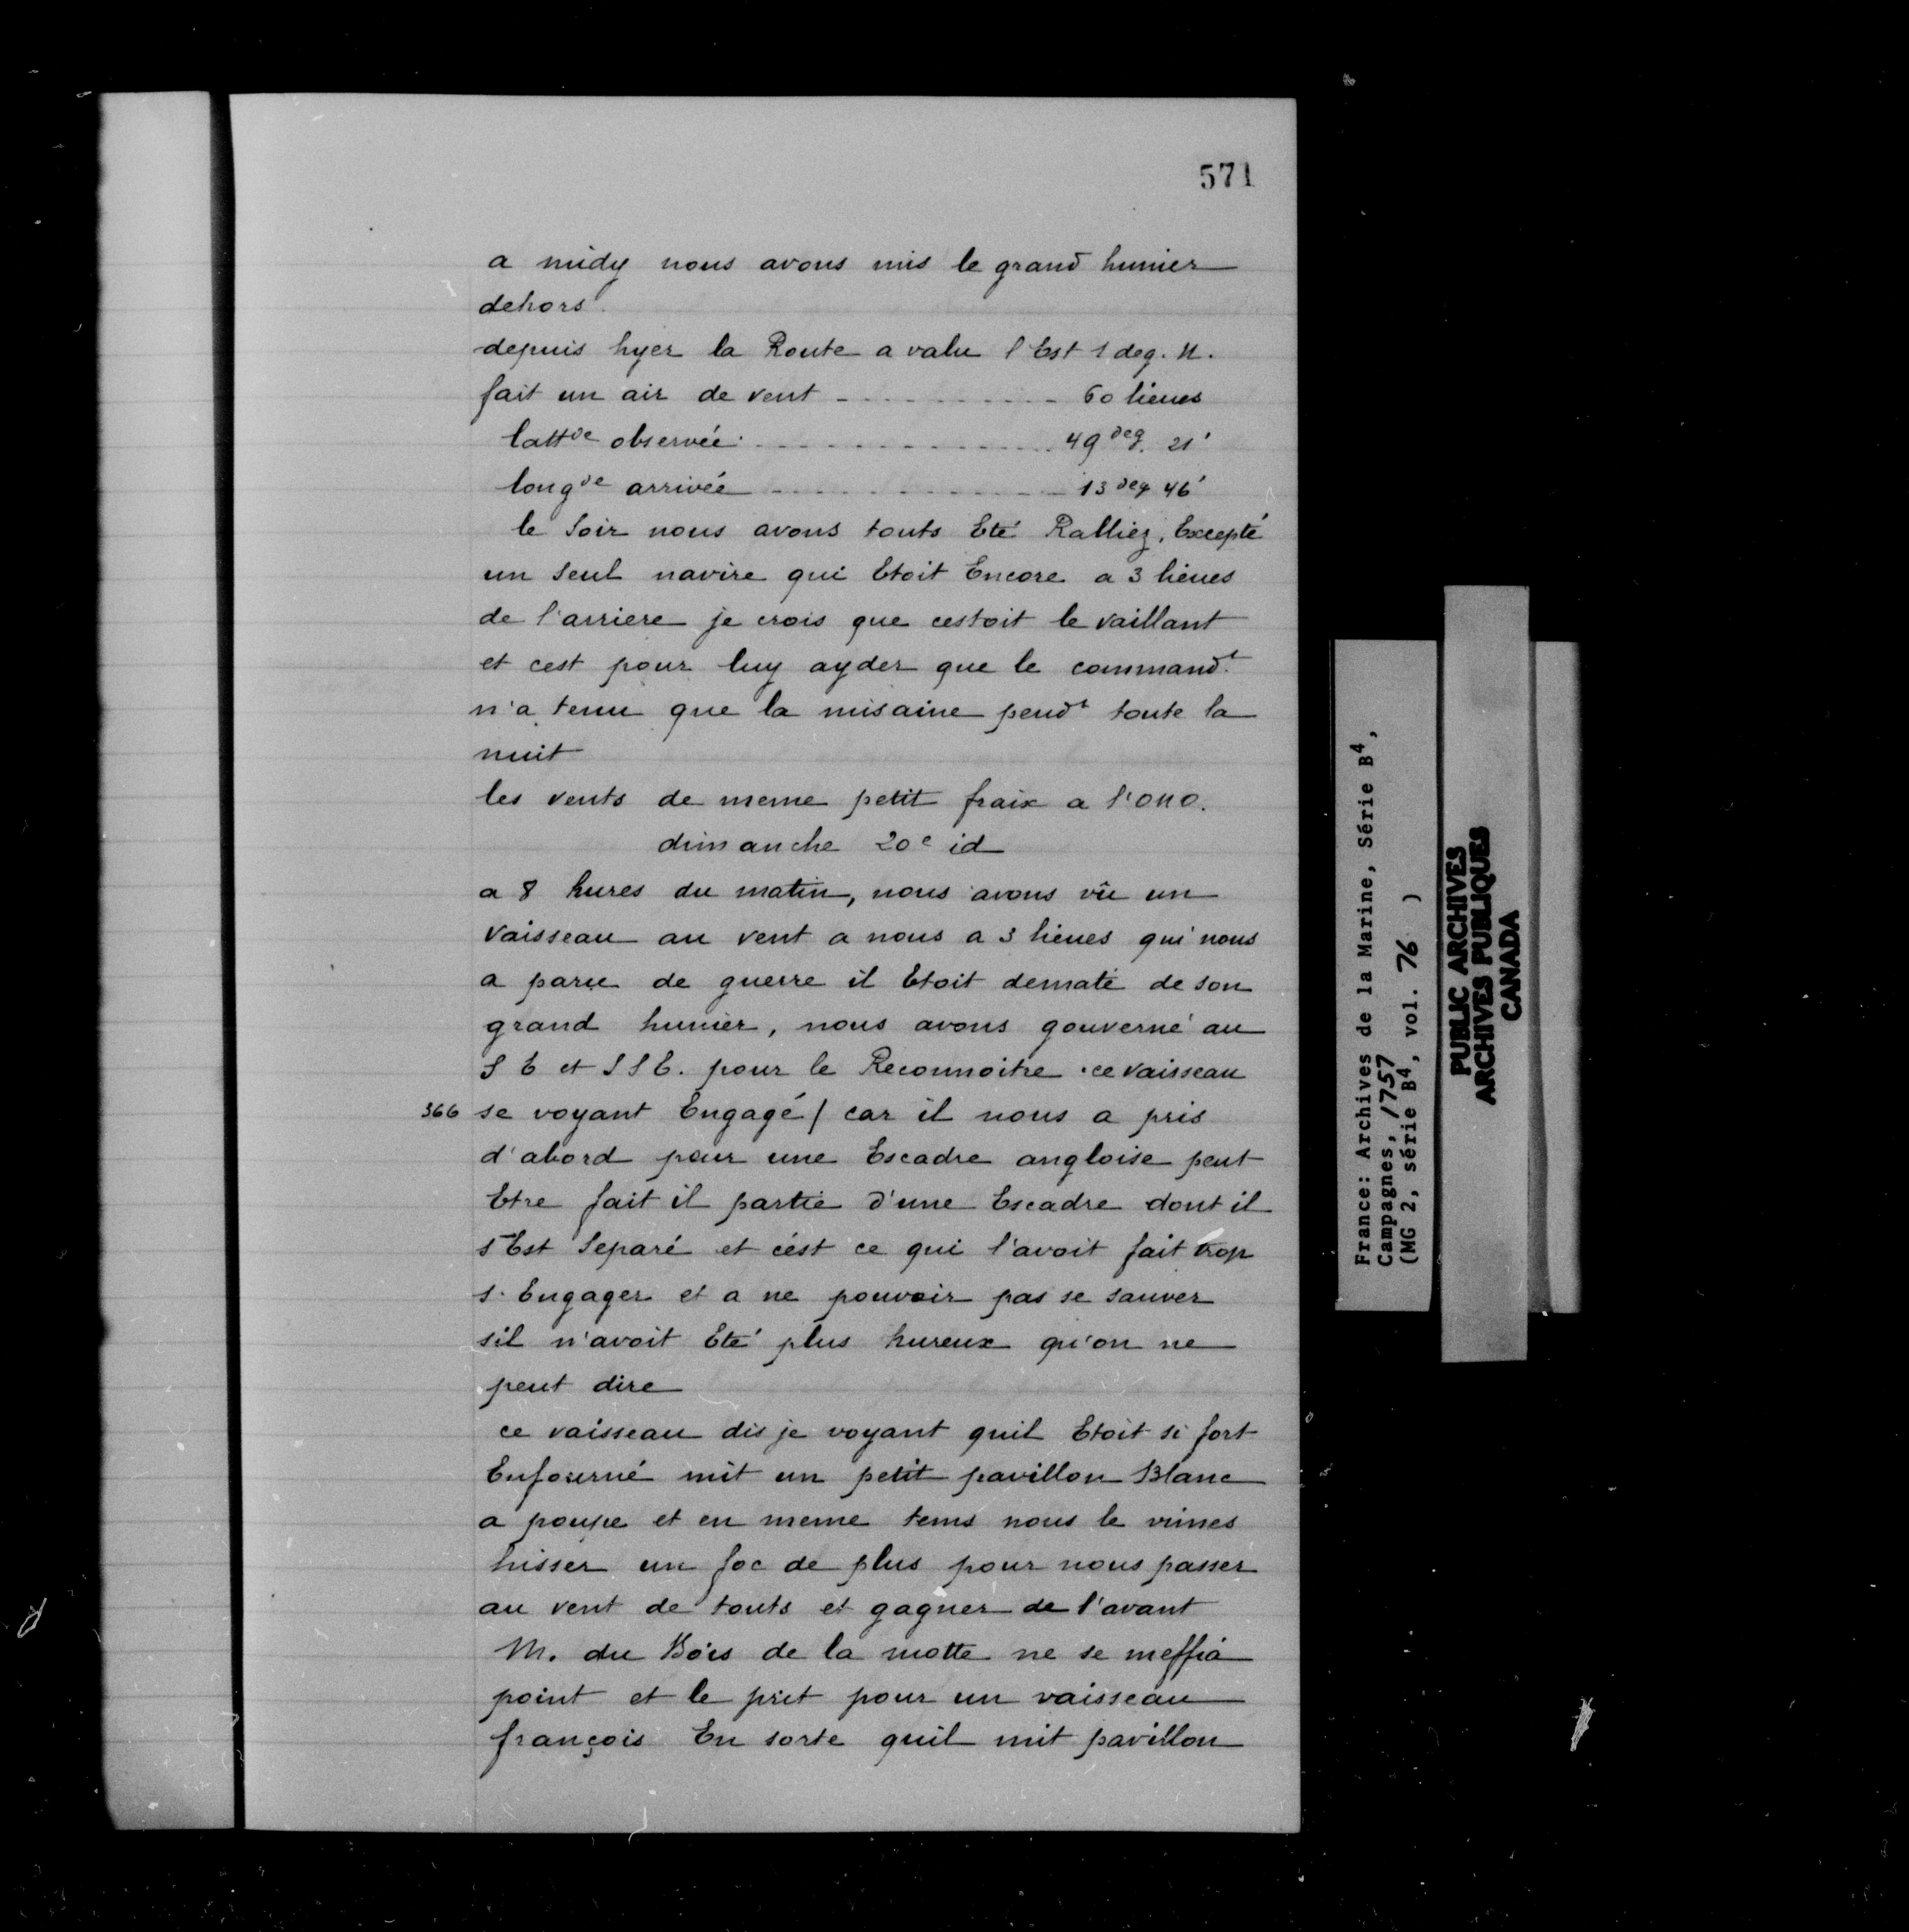 571
a midy nous avons mis le grand hunier
dehors.
depuis hyer la Route a valu l'Est 1 deg. N.
fait un air de vent - - - - - - - - - - - 60 lieues
lattde observée - - - - - - - - - - - 49 deg. 21'
longde arrivée - - - - - - - - - - - 13 deg 46'
le Soir nous avons touts Eté Ralliez, Excepté
un Seul navire qui Etoit Encore a 3 lieues
de l'arriere je crois que cestoit le vaillant
et cest pour luy ayder que le commandt
n'a tenu que la misaine pendt toute la
nuit
les vents de meme petit fraix a l'ONO.
dimanche 20e id
a 8 hures du matin, nous avons vû un
vaisseau au vent a nous a 3 lieues qui nous
a paru de guerre il Etoit dematé de son
grand hunier, nous avons gouverné au
S E et S S E. pour le Reconnoitre . ce vaisseau
366 se voyant Engagé / car il nous a pris
d'abord pour une Escadre angloise peut
Etre fait il partie d'une Escadre dont il
s'Est Separé et cést ce qui l'avoit fait trop
s'Engager et a ne pouvoir pas se sauver
sil n'avoit Eté plus hureux qu'on ne
peut dire
ce vaisseau dis je voyant quil Etoit si fort
Enfourné mit un petit pavillon Blanc
a poupe et en meme tems nous le vimes
hisser un foc de plus pour nous passer
au vent de touts et gagner de l'avant
M. du Bois de la motte ne se meffia
point et le prit pour un vaisseau
françois En sorte quil mit pavillon
France: Archives de la Marine, Série B4,
Campagnes, 1757
(MG 2, série B4, vol. 76 )
PUBLIC ARCHIVES
ARCHIVES PUBLIQUES
CANADA